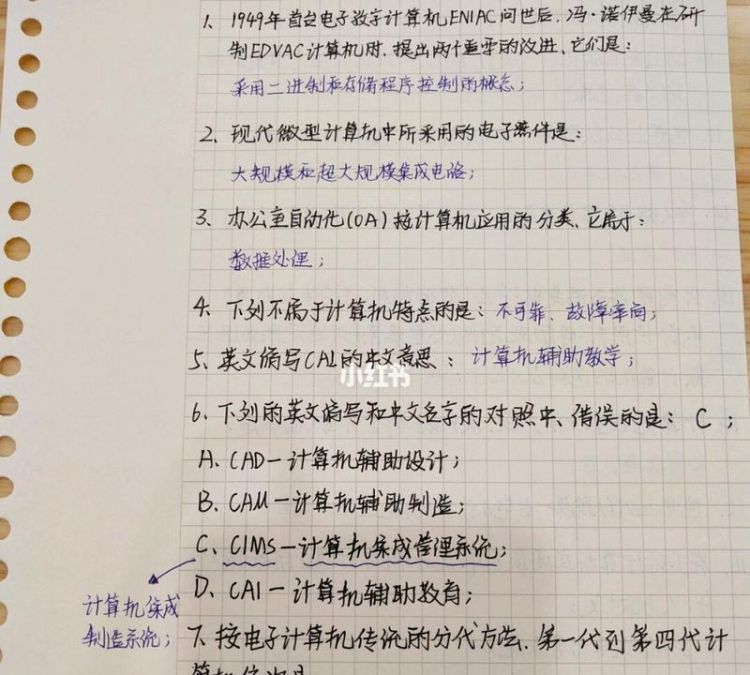 1、1949年首台电子数字计算机ENIAC问世后，冯·诺伊曼在研
制EDVAC计算机时，提出两个重要的改进，它们是：
采用二进制和存储程序控制的概念；
2、现代微型计算机中所采用的电子器件是：
大规模和超大规模集成电路；
3、办公室自动化(OA)按计算机应用的分类，它属于：
数据处理；
4、下列不属于计算机特点的是：不可靠、故障率高；
5、英文缩写CAI的中文意思：计算机辅助教学；
小红书
6、下列的英文缩写和中文名字的对照中、错误的是：C；
A、CAD－计算机辅助设计；
B、CAM－计算机辅助制造；
C、CIMS－计算机集成管理系统；
D、CAI－计算机辅助教育；
计算机集成
制造系统；
7、按电子计算机传统的分代方法，第一代到第四代计
算机依次是